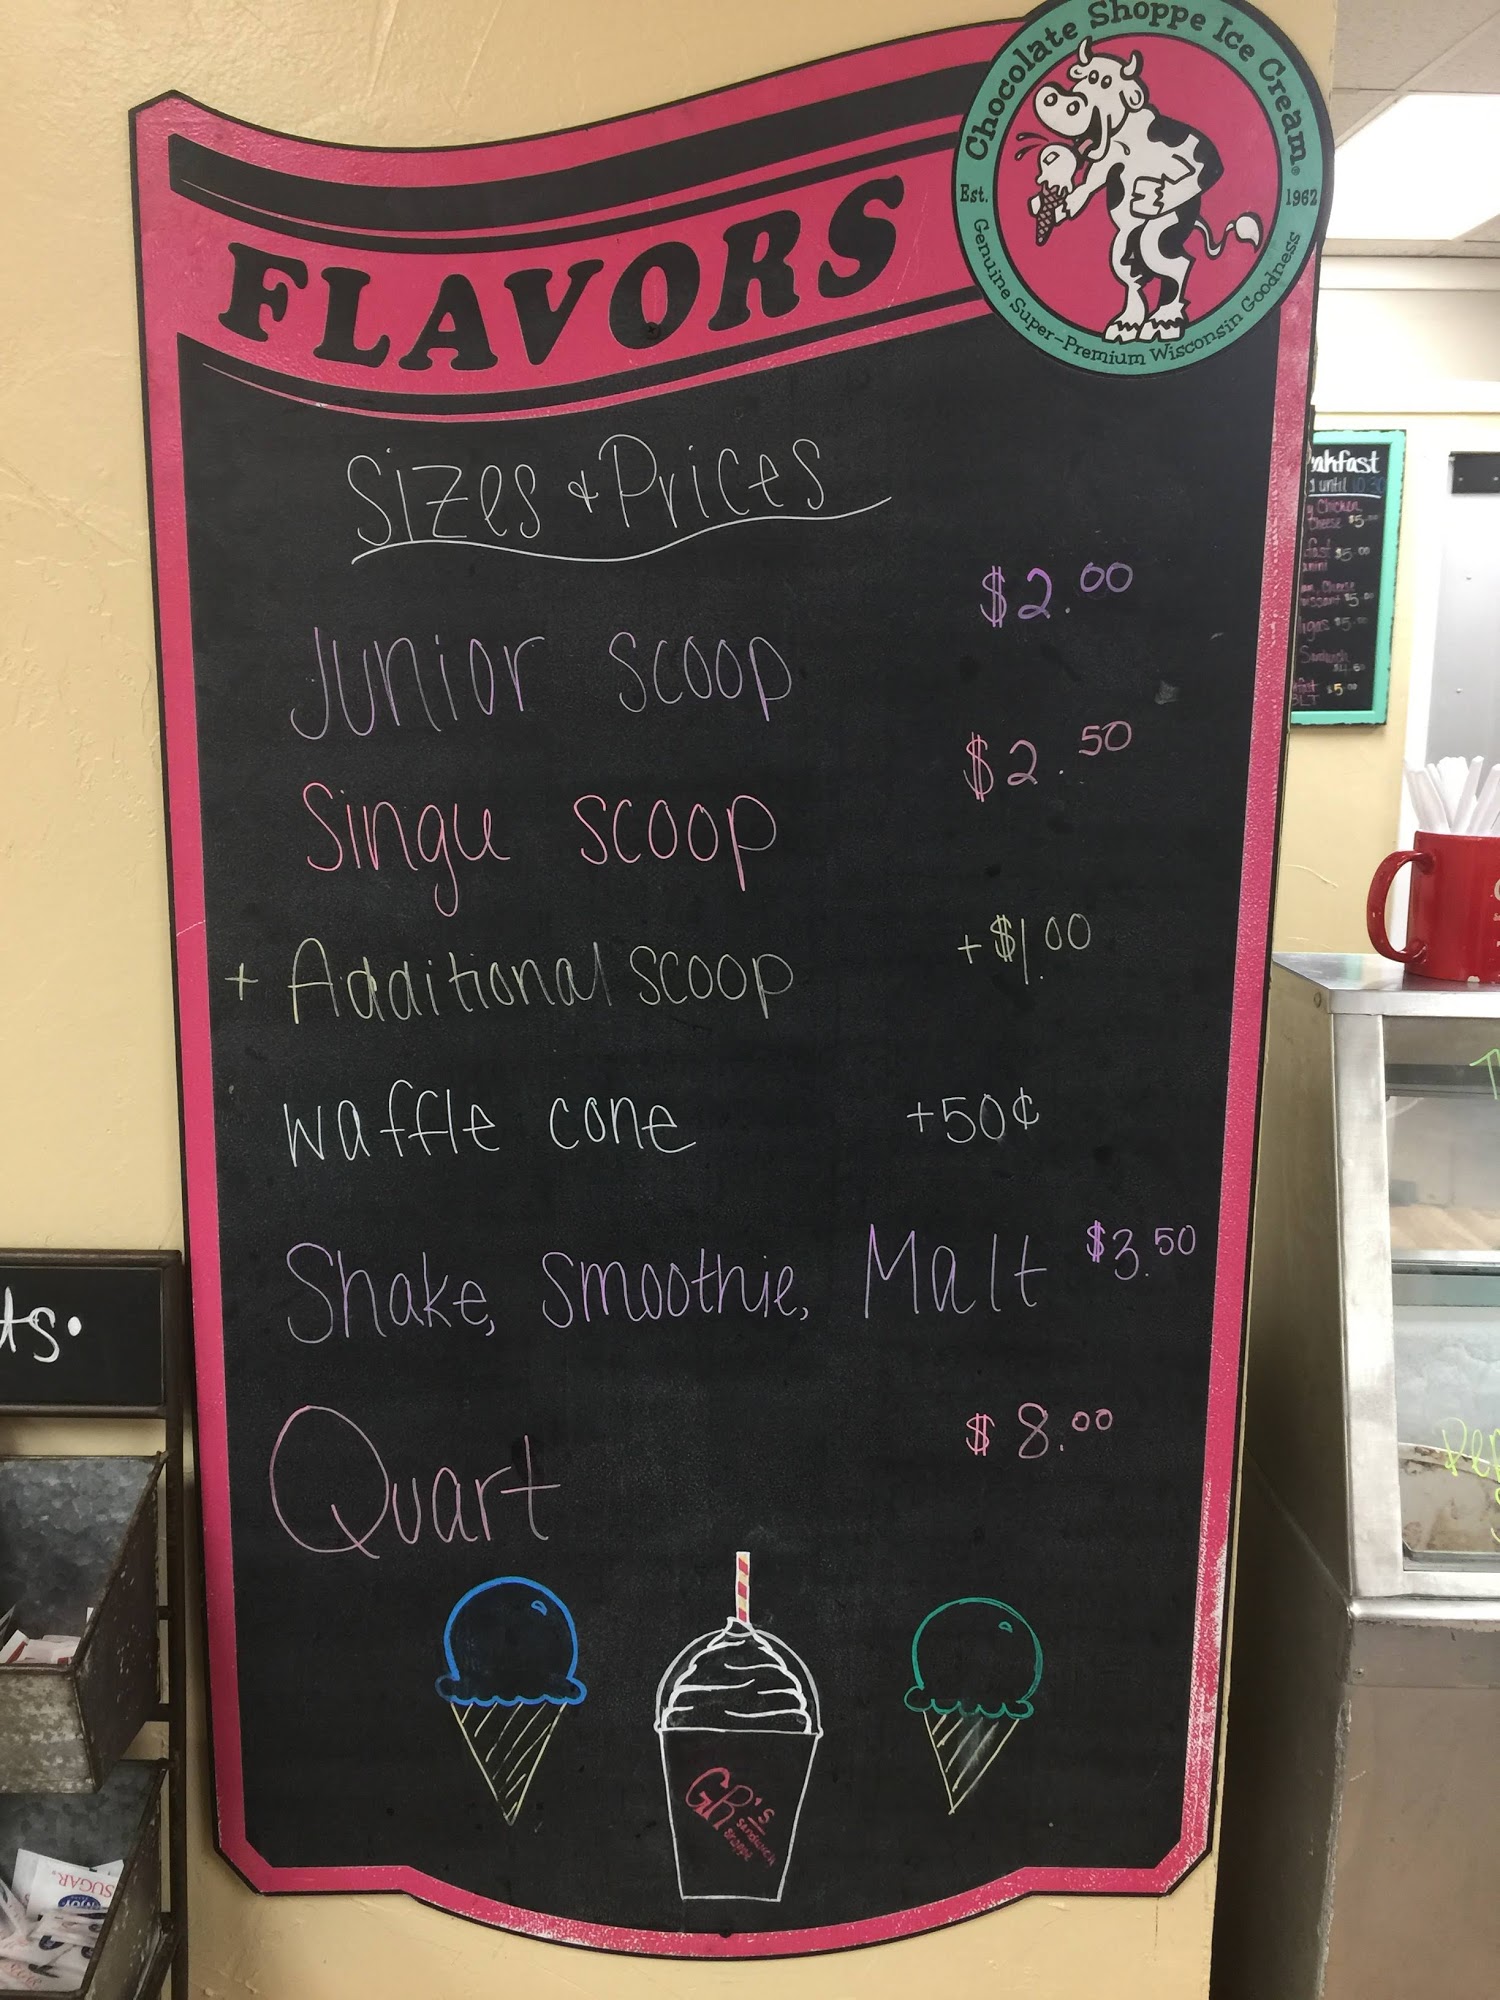 Chocolate Shoppe Ice Cream®
Est. 1962
Genuine Super-Premium Wisconsin Goodness
FLAVORS
Sizes + Prices
Junior scoop $2.00
Single scoop $2.50
+ Additional scoop +$1.00
waffle cone +50¢
Shake, Smoothie, Malt $3.50
Quart $8.00
GR's
Sandwich
Shoppe
akfast
until 10:30
y Chicken,
Cheese $5.00
fast $5.00
anini
Cheese
issant $5.00
ligas $5.00
Sandwich
$4.50
fast $5.00
BLT
ts.
SUGAR